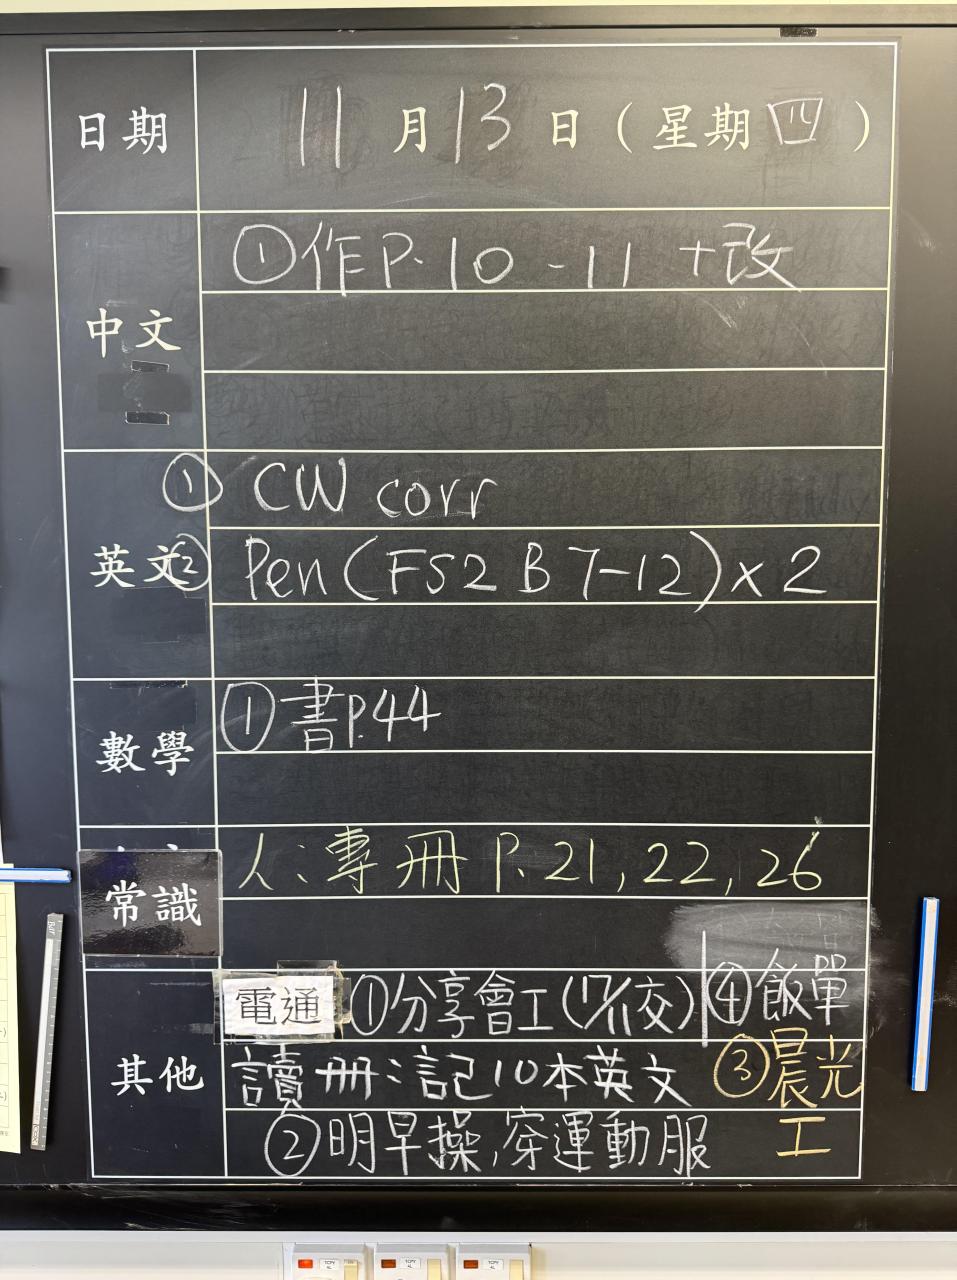 日期 11月13日(星期四)
中文 ①作P.10-11 +改
英文 ① CW corr
② Pen(FS2 B 7-12)x2
數學 ①書P.44
常識 人:專冊 P.21,22,26
其他 電通 ①分享會工(17/11交) ④飯單
讀冊:記10本英文 ③晨光工
②明早操,穿運動服